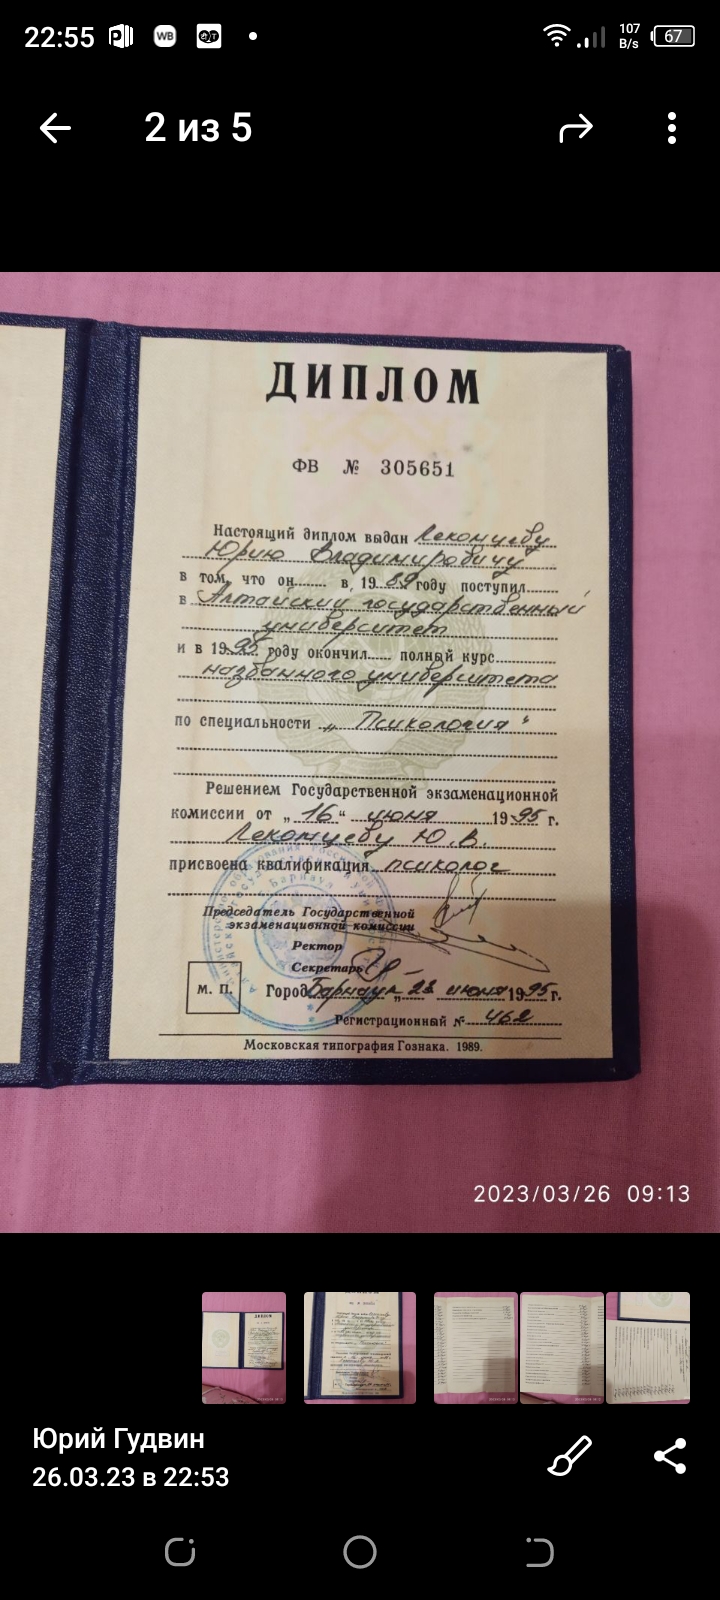 22:55
WB
107 B/s
67
2 из 5
ДИПЛОМ
ФВ № 305651
Настоящий диплом выдан Лекомцеву
Юрию Владимировичу
в том, что он в 1989 году поступил
в Алтайский государственный
университет
и в 1995 году окончил полный курс
названного университета
по специальности „Психология"
Решением Государственной экзаменационной
комиссии от „16" июня 1995 г.
Лекомцеву Ю.В.
присвоена квалификация психолог
Председатель Государственной
экзаменационной комиссии
Ректор
Секретарь
М. П.
Город Барнаул „23 июня 1995 г.
Регистрационный № 462
Московская типография Гознака. 1989.
2023/03/26 09:13
Юрий Гудвин
26.03.23 в 22:53